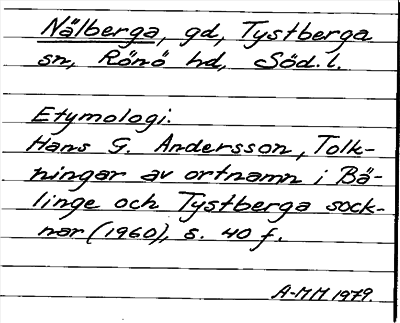 Nälberga, gd, Tystberga
sn, Rönö hd, Söd. l.
Etymologi:
Hans G. Andersson, Tolk-
ningar av ortnamn i Bä-
linge och Tystberga sock-
nar (1960), s. 40 f.
A-MM 1979.